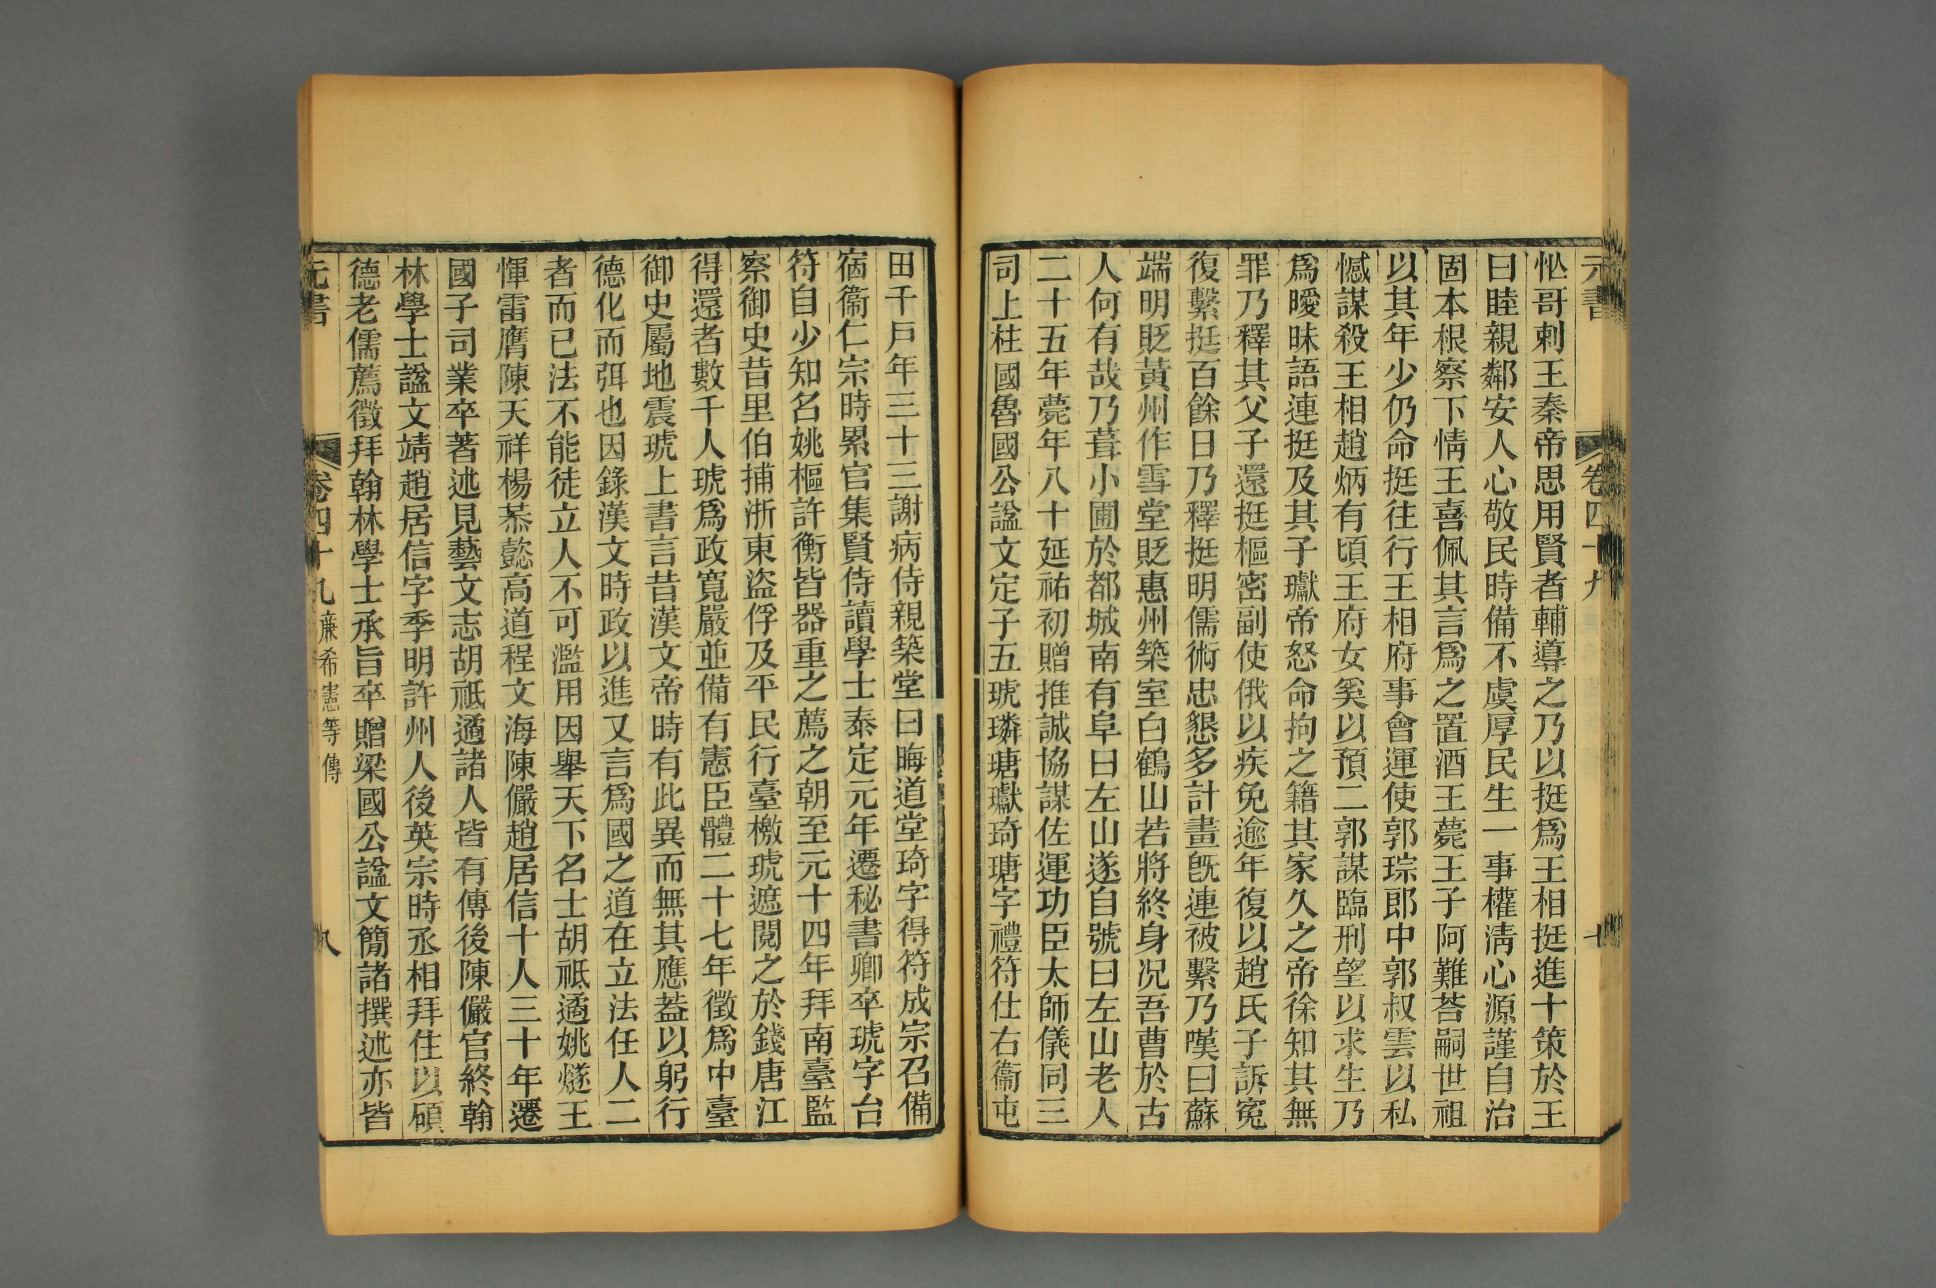 元書 卷四十九 七
怭哥剌王秦帝思用賢者輔導之乃以挺爲王相挺進十策於王
曰睦親鄰安人心敬民時備不虞厚民生一事權淸心源謹自治
固本根察下情王喜佩其言爲之置酒王薨王子阿難荅嗣世祖
以其年少仍命挺往行王相府事會運使郭琮郎中郭叔雲以私
憾謀殺王相趙炳有頃王府女奚以預二郭謀臨刑望以求生乃
爲曖昧語連挺及其子瓛帝怒命拘之籍其家久之帝徐知其無
罪乃釋其父子還挺樞密副使俄以疾免逾年復以趙氏子訴寃
復繫挺百餘日乃釋挺明儒術忠懇多計畫旣連被繫乃嘆曰蘇
端明貶黃州作雪堂貶惠州築室白鶴山若將終身况吾曹於古
人何有哉乃葺小圃於都城南有阜曰左山遂自號曰左山老人
二十五年薨年八十延祐初贈推誠協謀佐運功臣太師儀同三
司上柱國魯國公諡文定子五琥璘瑭瓛琦瑭字禮符仕右衞屯
田千戶年三十三謝病侍親築堂曰晦道堂琦字得符成宗召備
宿衞仁宗時累官集賢侍讀學士泰定元年遷秘書卿卒琥字台
符自少知名姚樞許衡皆器重之薦之朝至元十四年拜南臺監
察御史昔里伯捕浙東盜俘及平民行臺檄琥遮閱之於錢唐江
得還者數千人琥爲政寬嚴並備有憲臣體二十七年徵爲中臺
御史屬地震琥上書言昔漢文帝時有此異而無其應葢以躬行
德化而弭也因錄漢文時政以進又言爲國之道在立法任人二
者而已法不能徒立人不可濫用因舉天下名士胡祗遹姚燧王
惲雷膺陳天祥楊恭懿高道程文海陳儼趙居信十人三十年遷
國子司業卒著述見藝文志胡祗遹諸人皆有傳後陳儼官終翰
林學士諡文靖趙居信字季明許州人後英宗時丞相拜住以碩
德老儒薦徵拜翰林學士承旨卒贈梁國公諡文簡諸撰述亦皆
元書 卷四十九 廉希憲等傳 八